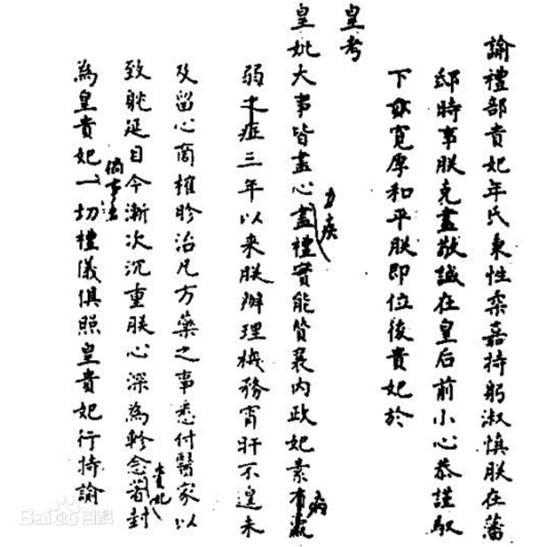 諭禮部貴妃年氏秉性柔嘉持躬淑慎朕在藩
邸時事朕克盡敬誠在皇后前小心恭謹馭
下亦寬厚和平朕即位後貴妃於
皇考
皇妣大事皆盡心力疾盡禮實能贊襄內政妃素病有羸
弱之症三年以來朕辦理機務宵旰不遑未
及留心商榷胗治凡方藥之事悉付醫家以
致耽延目今漸次沉重朕心深為軫念貴妃著封
為皇貴妃倘事出一切禮儀俱照皇貴妃行特諭
Bai百科